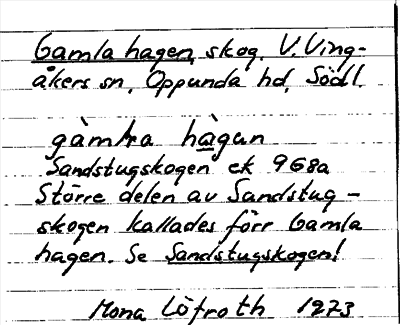 Gamla hagen, skog. V. Ving-
åkers sn, Oppunda hd, Södl.
gàmḷa hàgan
Sandstugskogen ek 968a
Större delen av Sandstug-
skogen kallades förr Gamla
hagen. Se Sandstugskogen!
Mona Löfroth 1973